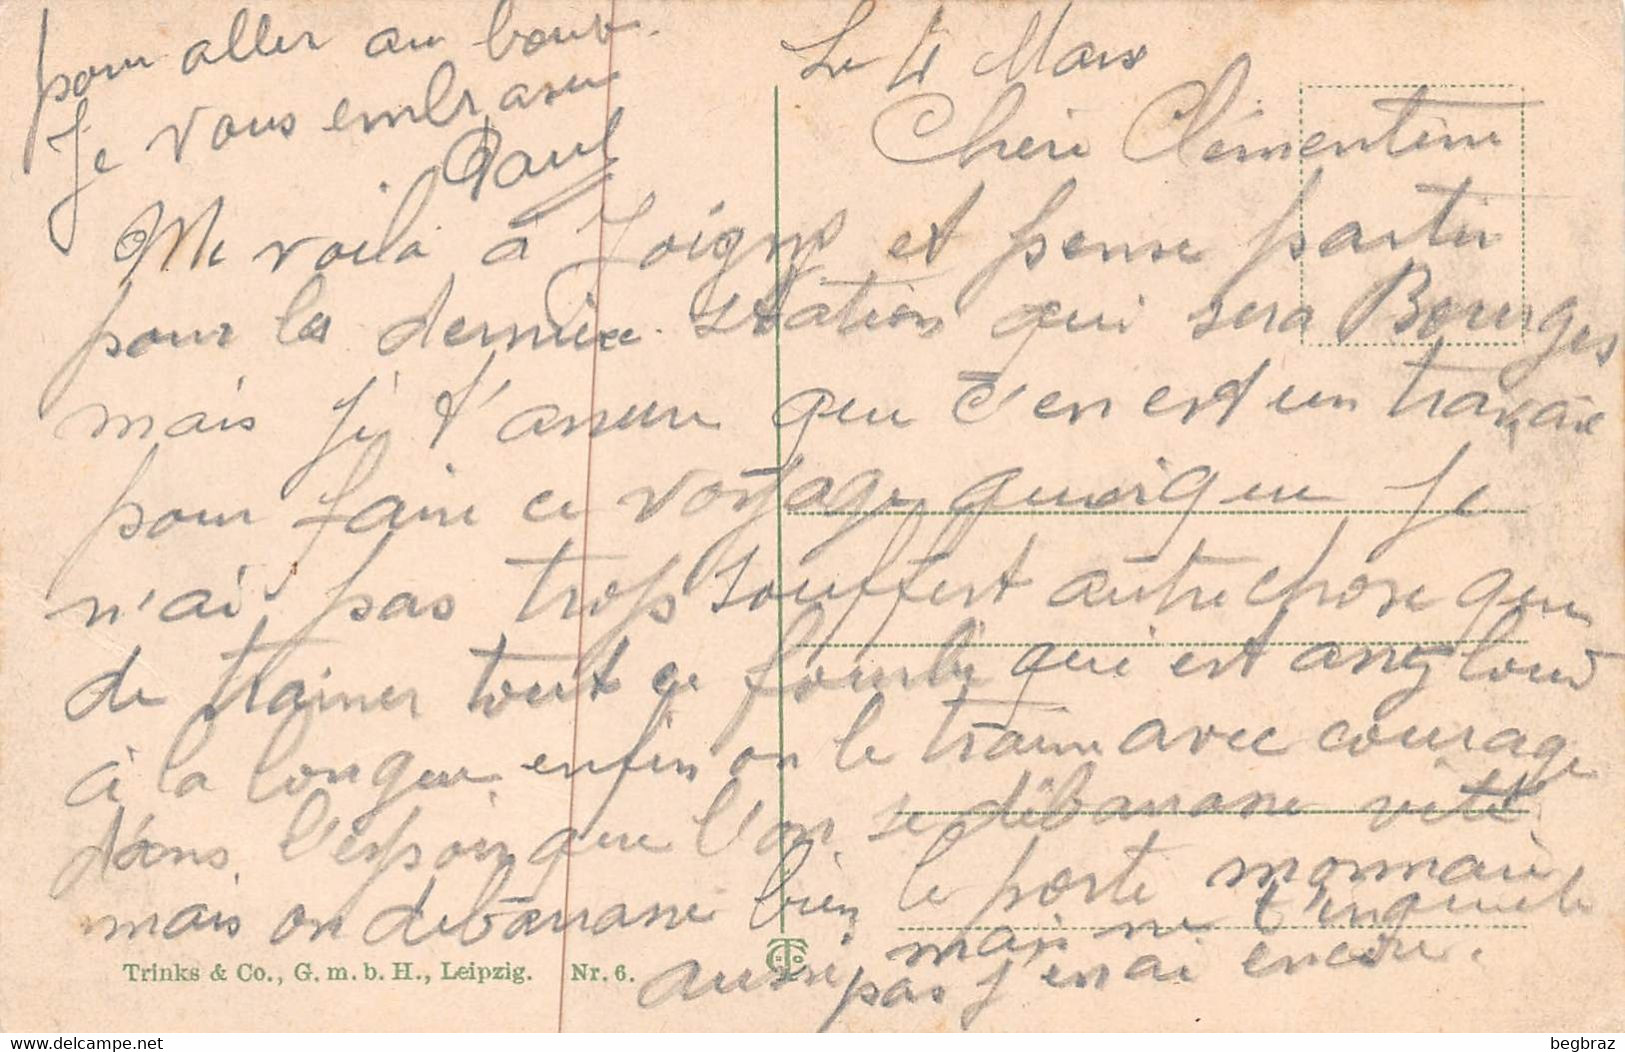 Le 4 Mars
Chère Clémentine
Me voilà à Joigny et pense partir
pour la dernière station qui sera Bourges
mais je t'assure que c'en est un travail
pour faire ce voyage quoique je
n'ai pas trop souffert autre chose que
de trainer tout ce fourbi qui est assez lourd
à la longue enfin on le traine avec courage
dans l'espoir que l'on se débarrasse vite
mais on débarrasse bien le porte monnaie
aussi mais ne t'inquiete
pas j'en ai encore.
pour aller au bout.
Je vous embrasse
Paul
Trinks & Co., G. m. b. H., Leipzig. Nr. 6.
begbraz